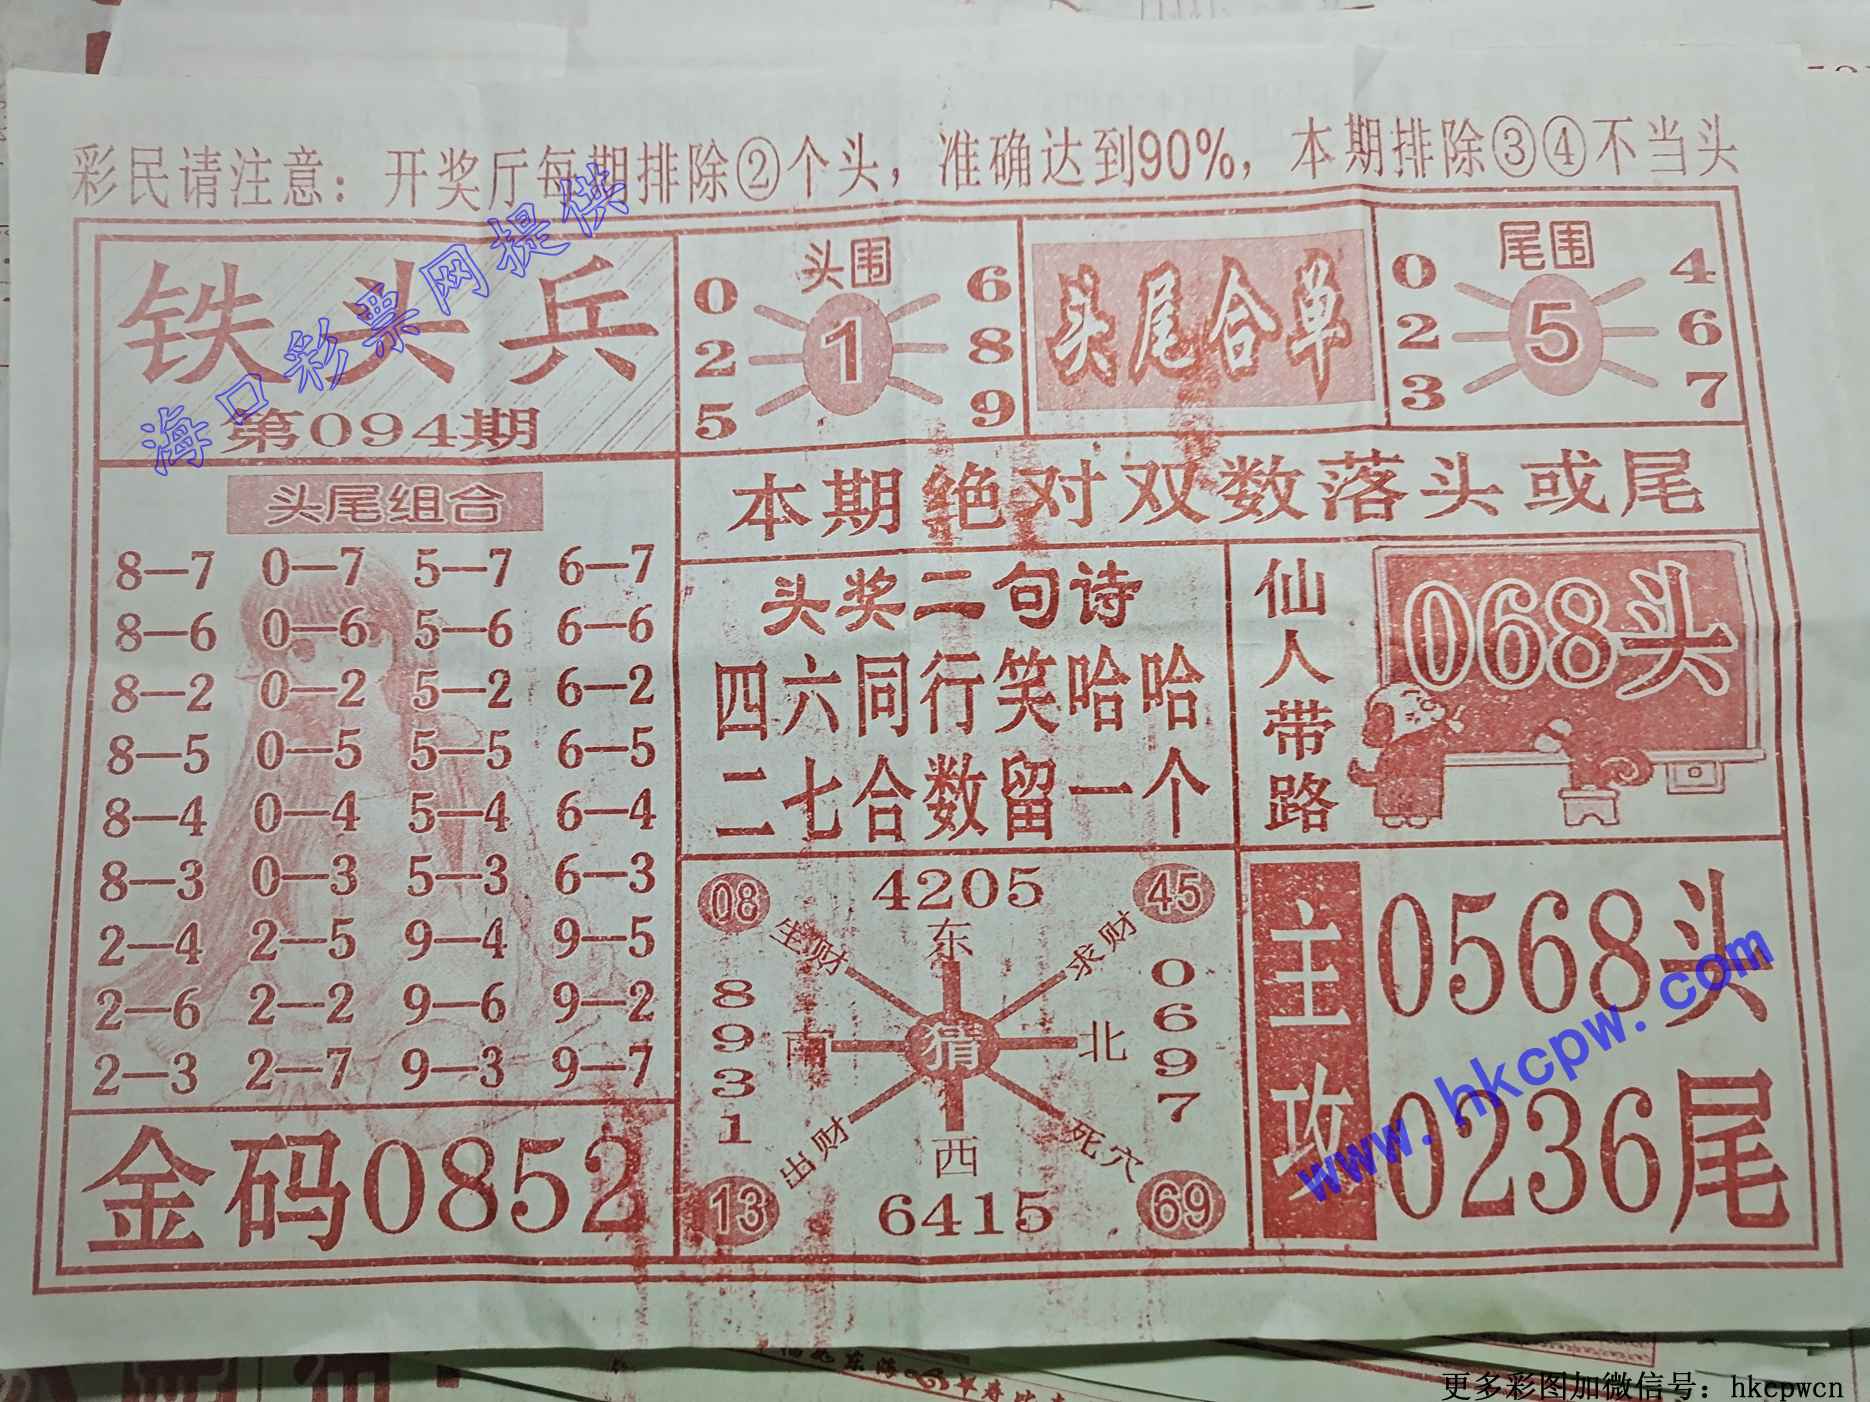 彩民请注意：开奖厅每期排除②个头，准确达到90%，本期排除③④不当头
铁头兵
第094期
海口彩票网提供
头围
0 6
2 1 8
5 9
头尾合单
尾围
0 4
2 5 6
3 7
本期绝对双数落头或尾
头尾组合
8—7 0—7 5—7 6—7
8—6 0—6 5—6 6—6
8—2 0—2 5—2 6—2
8—5 0—5 5—5 6—5
8—4 0—4 5—4 6—4
8—3 0—3 5—3 6—3
2—4 2—5 9—4 9—5
2—6 2—2 9—6 9—2
2—3 2—7 9—3 9—7
金码0852
头奖二句诗
四六同行笑哈哈
二七合数留一个
仙人带路
068头
08 4205 45
生财 东 求财
8931 南 猜 北 0697
出财 西 死穴
13 6415 69
主攻
0568头
0236尾
www.hkcpw.com
更多彩图加微信号：hkcpwcn